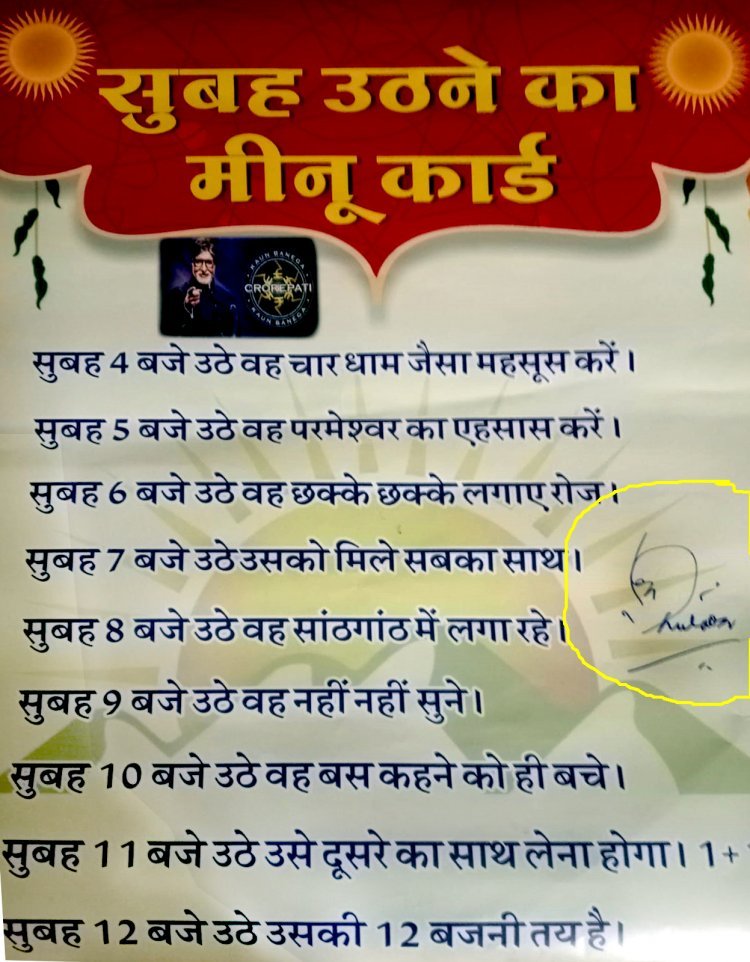 सुबह उठने का
मीनू कार्ड
KAUN BANEGA
CROREPATI
KAUN BANEGA
सुबह 4 बजे उठे वह चार धाम जैसा महसूस करें।
सुबह 5 बजे उठे वह परमेश्वर का एहसास करें।
सुबह 6 बजे उठे वह छक्के छक्के लगाए रोज।
सुबह 7 बजे उठे उसको मिले सबका साथ।
सुबह 8 बजे उठे वह सांठगांठ में लगा रहे।
सुबह 9 बजे उठे वह नहीं नहीं सुने।
सुबह 10 बजे उठे वह बस कहने को ही बचे।
सुबह 11 बजे उठे उसे दूसरे का साथ लेना होगा। 1+
सुबह 12 बजे उठे उसकी 12 बजनी तय है।